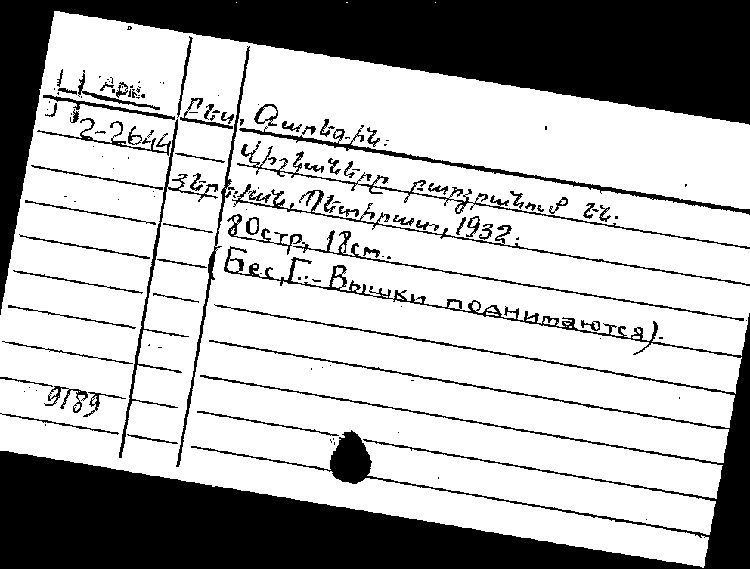 Арм.
2-2644
Բես, Գարեգին:
Վիշկաները բարձրանում են:
Յերեվան, Պետհրատ, 1932:
80стр, 18см.
(Бес, Г.:- Вышки поднимаются).
9189